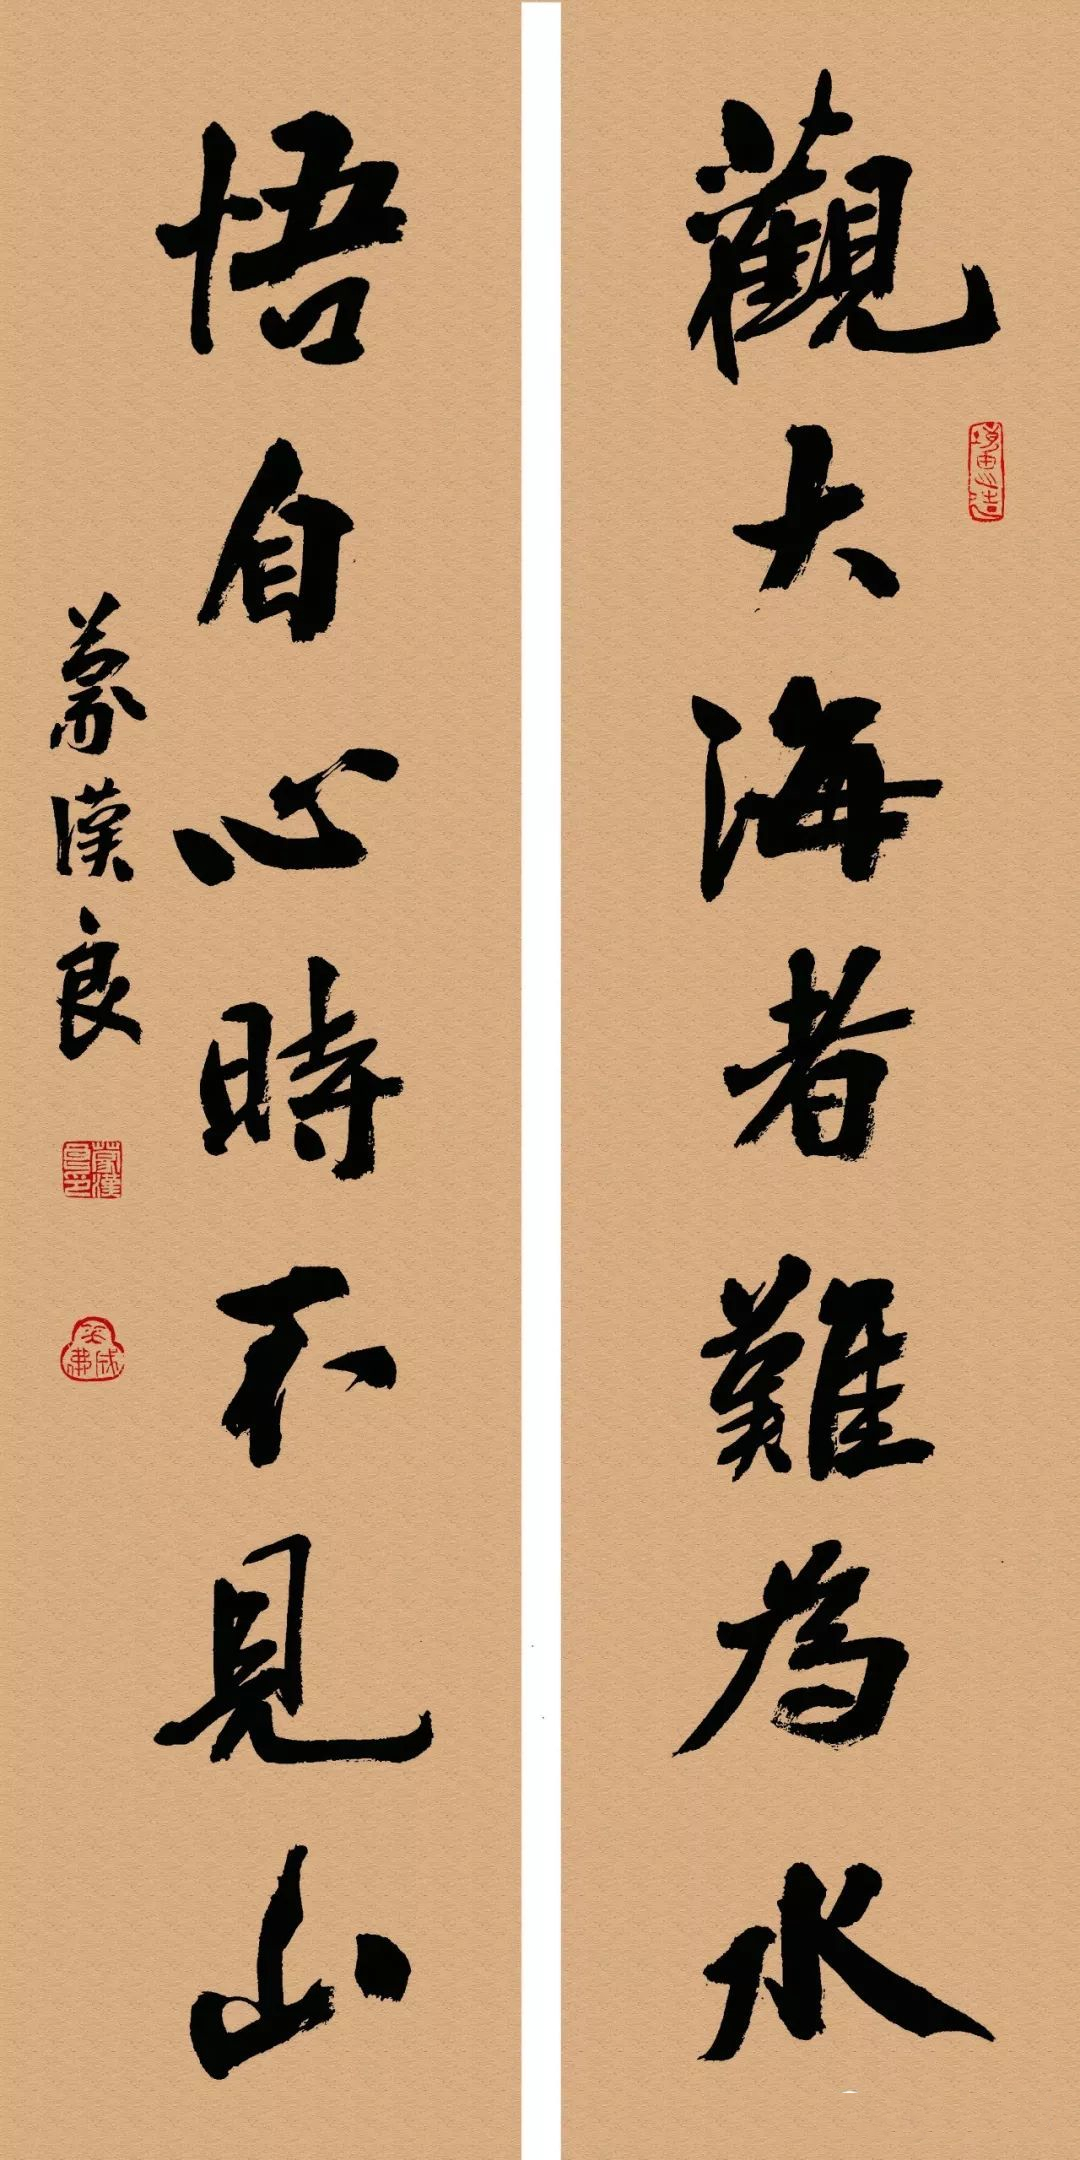 觀大海者難為水
悟自心時不見山
蒙漢良